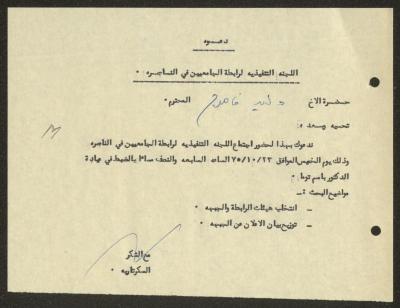 دعوه
اللجنه التنفيذيه لرابطة الجامعيين في الناصره :
حضرة الاخ د. وليد المحترم .
تحيه وبعد ،
ندعوك بهذا لحضور اجتماع اللجنه التنفيذيه لرابطة الجامعيين في الناصره
وذلك يوم الخميس الموافق ٧٥/١٠/٢٣ الساعه السابعه والنصف مساء بالضبط في عيادة
الدكتور باسم
مواضيع البحث :ـ
ــ انتخاب هيئات الرابطة والجبهه
ــ توزيع بيان الاعلان عن الجبهه
مع الشكر
السكرتاريه